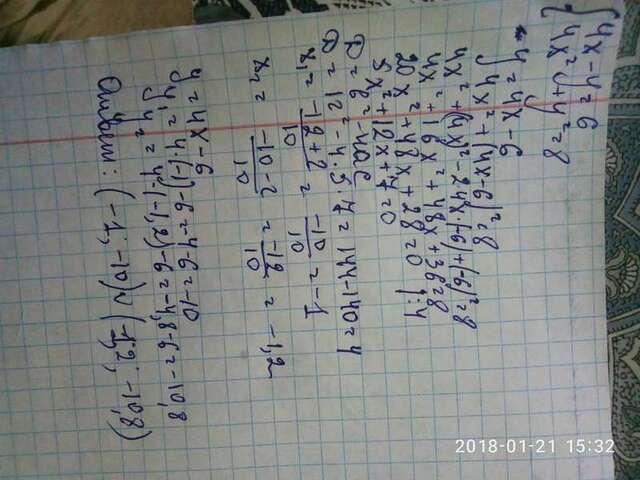 4x-y=6
4x²+y²=8
y=4x-6
4x²+(4x-6)²=8
4x²+(4x)²-2·4x·(-6)+(-6)²=8
4x²+16x²+48x+36=8
20x²+48x+28=0 |:4
5x²+12x+7=0
D=b²-4ac
D=12²-4·5·7=144-140=4
x₁=-12+2/10=-10/10=-1
x₂=-10-2/10=-12/10=-1,2
y=4x-6
y₁=4·(-1)-6=-4-6=-10
y₂=4·(-1,2)-6=-4,8-6=-10,8
Ответ: (-1;-10) и (-1,2;-10,8)
2018-01-21 15:32